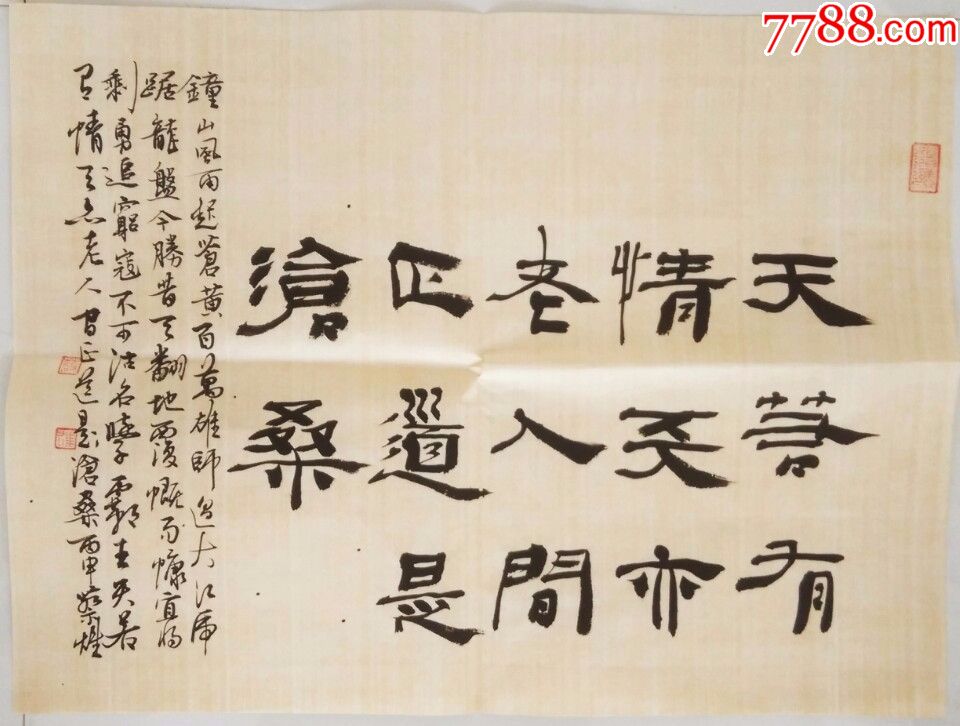 7788.com
天若有
情天亦
老人間
正道是
滄桑
鐘山風雨起蒼黃百萬雄師過大江虎
踞龍盤今勝昔天翻地覆慨而慷宜將
剩勇追窮寇不可沽名學霸王天若
有情天亦老人間正道是滄桑丙申